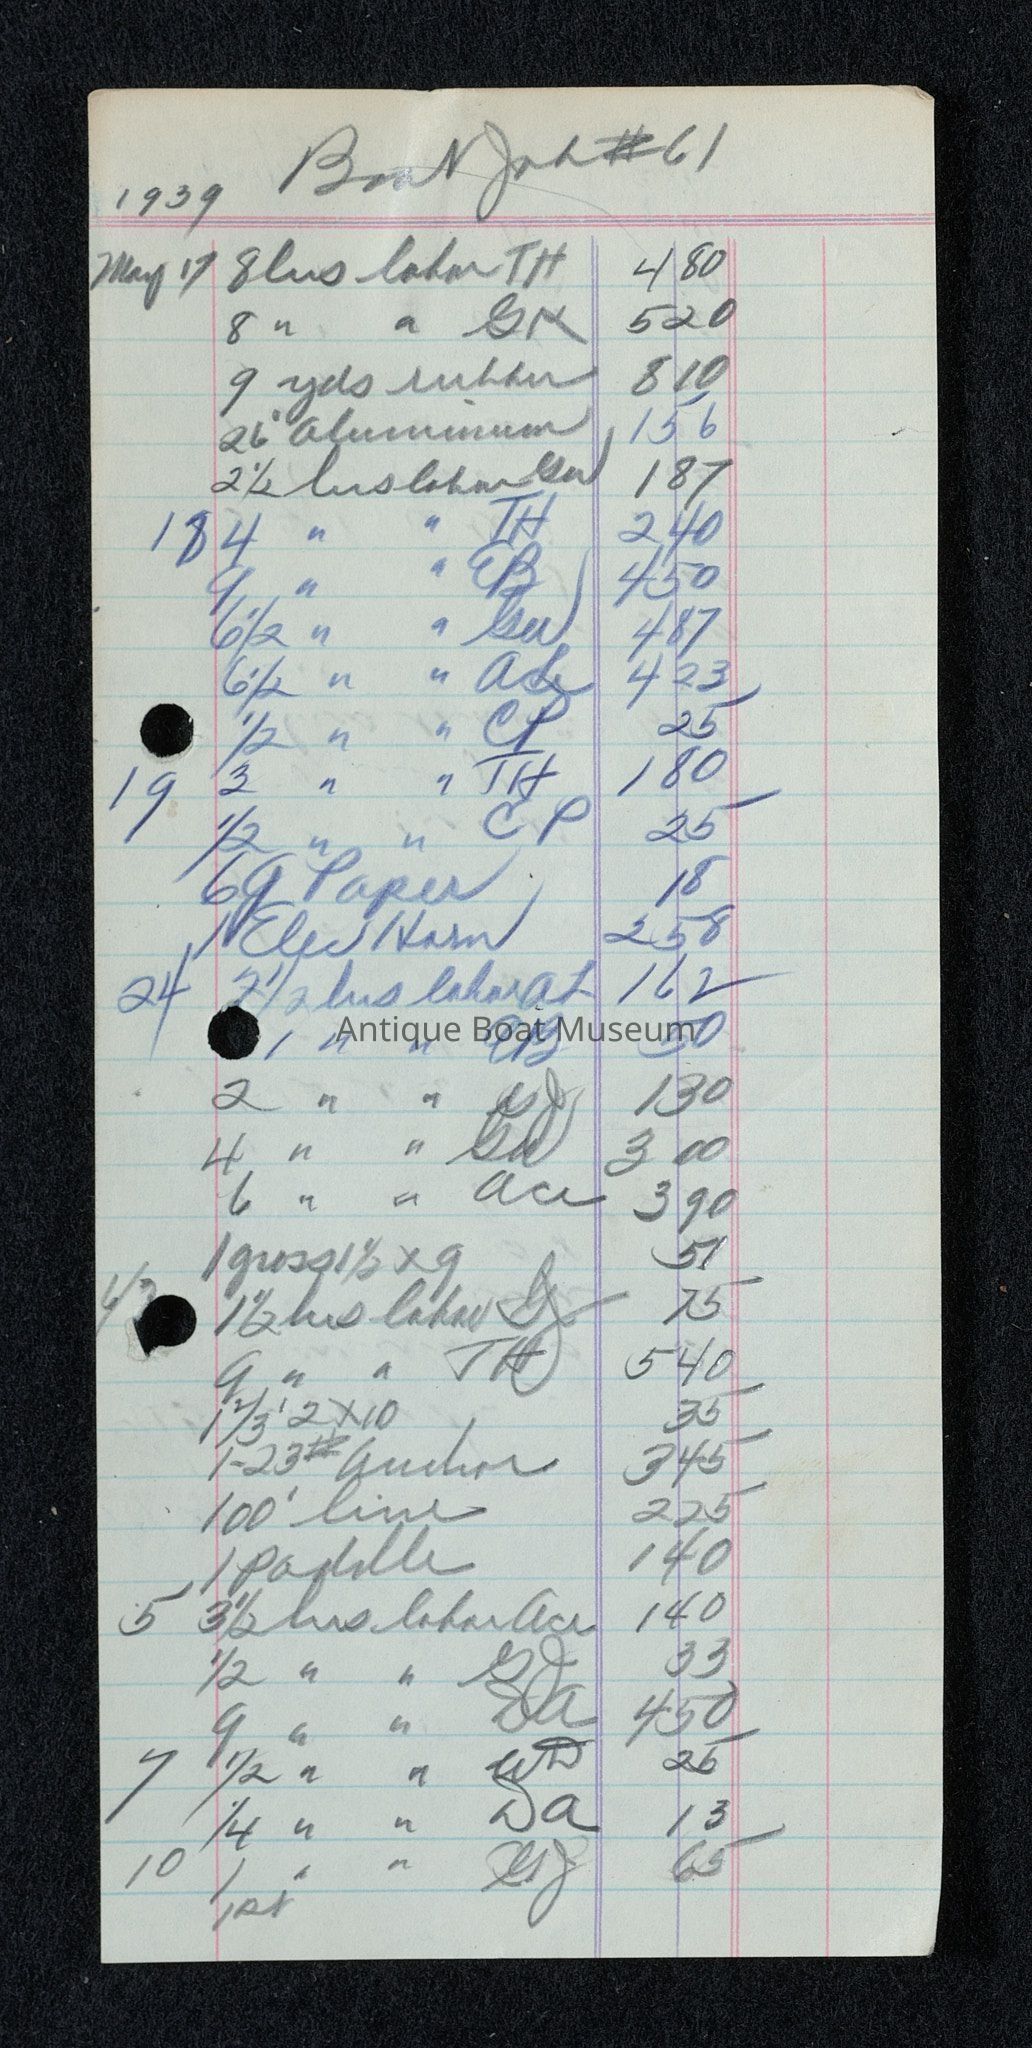 Boat Job #61
1939
May 17 8 hrs labor TH 4 80
8 " " GK 5 20
9 yds rubber 8 10
26' Aluminum 1 56
2 1/2 hrs labor GW 1 87
18 4 " " TH 2 40
9 " " EB 4 50
6 1/2 " " GW 4 87
6 1/2 " " 4 23
1/2 " " CP 25
19 3 " " TH 1 80
1/2 " " CP 25
6 g Paper 18
1 Elec Horn 2 58
24 2 1/2 hrs labor AL 1 62
Antique Boat Museum
1 " " EB 50
2 " " GJ 1 30
4 " " GW 3 00
6 " " Ace 3 90
1 gross 1 1/2 x 9 51
1 1/2 hrs labor 75
9 " " TH 5 40
1 2/3' 2 x 10 35
1-23# Anchor 3 45
100' line 2 25
1 Paddle 1 40
5 3 1/2 hrs labor Ace 1 40
1/2 " " GJ 33
9 " " DA 4 50
7 1/2 " " WD 25
1/4 " " DA 13
10 1 " " GJ 65
1 pt